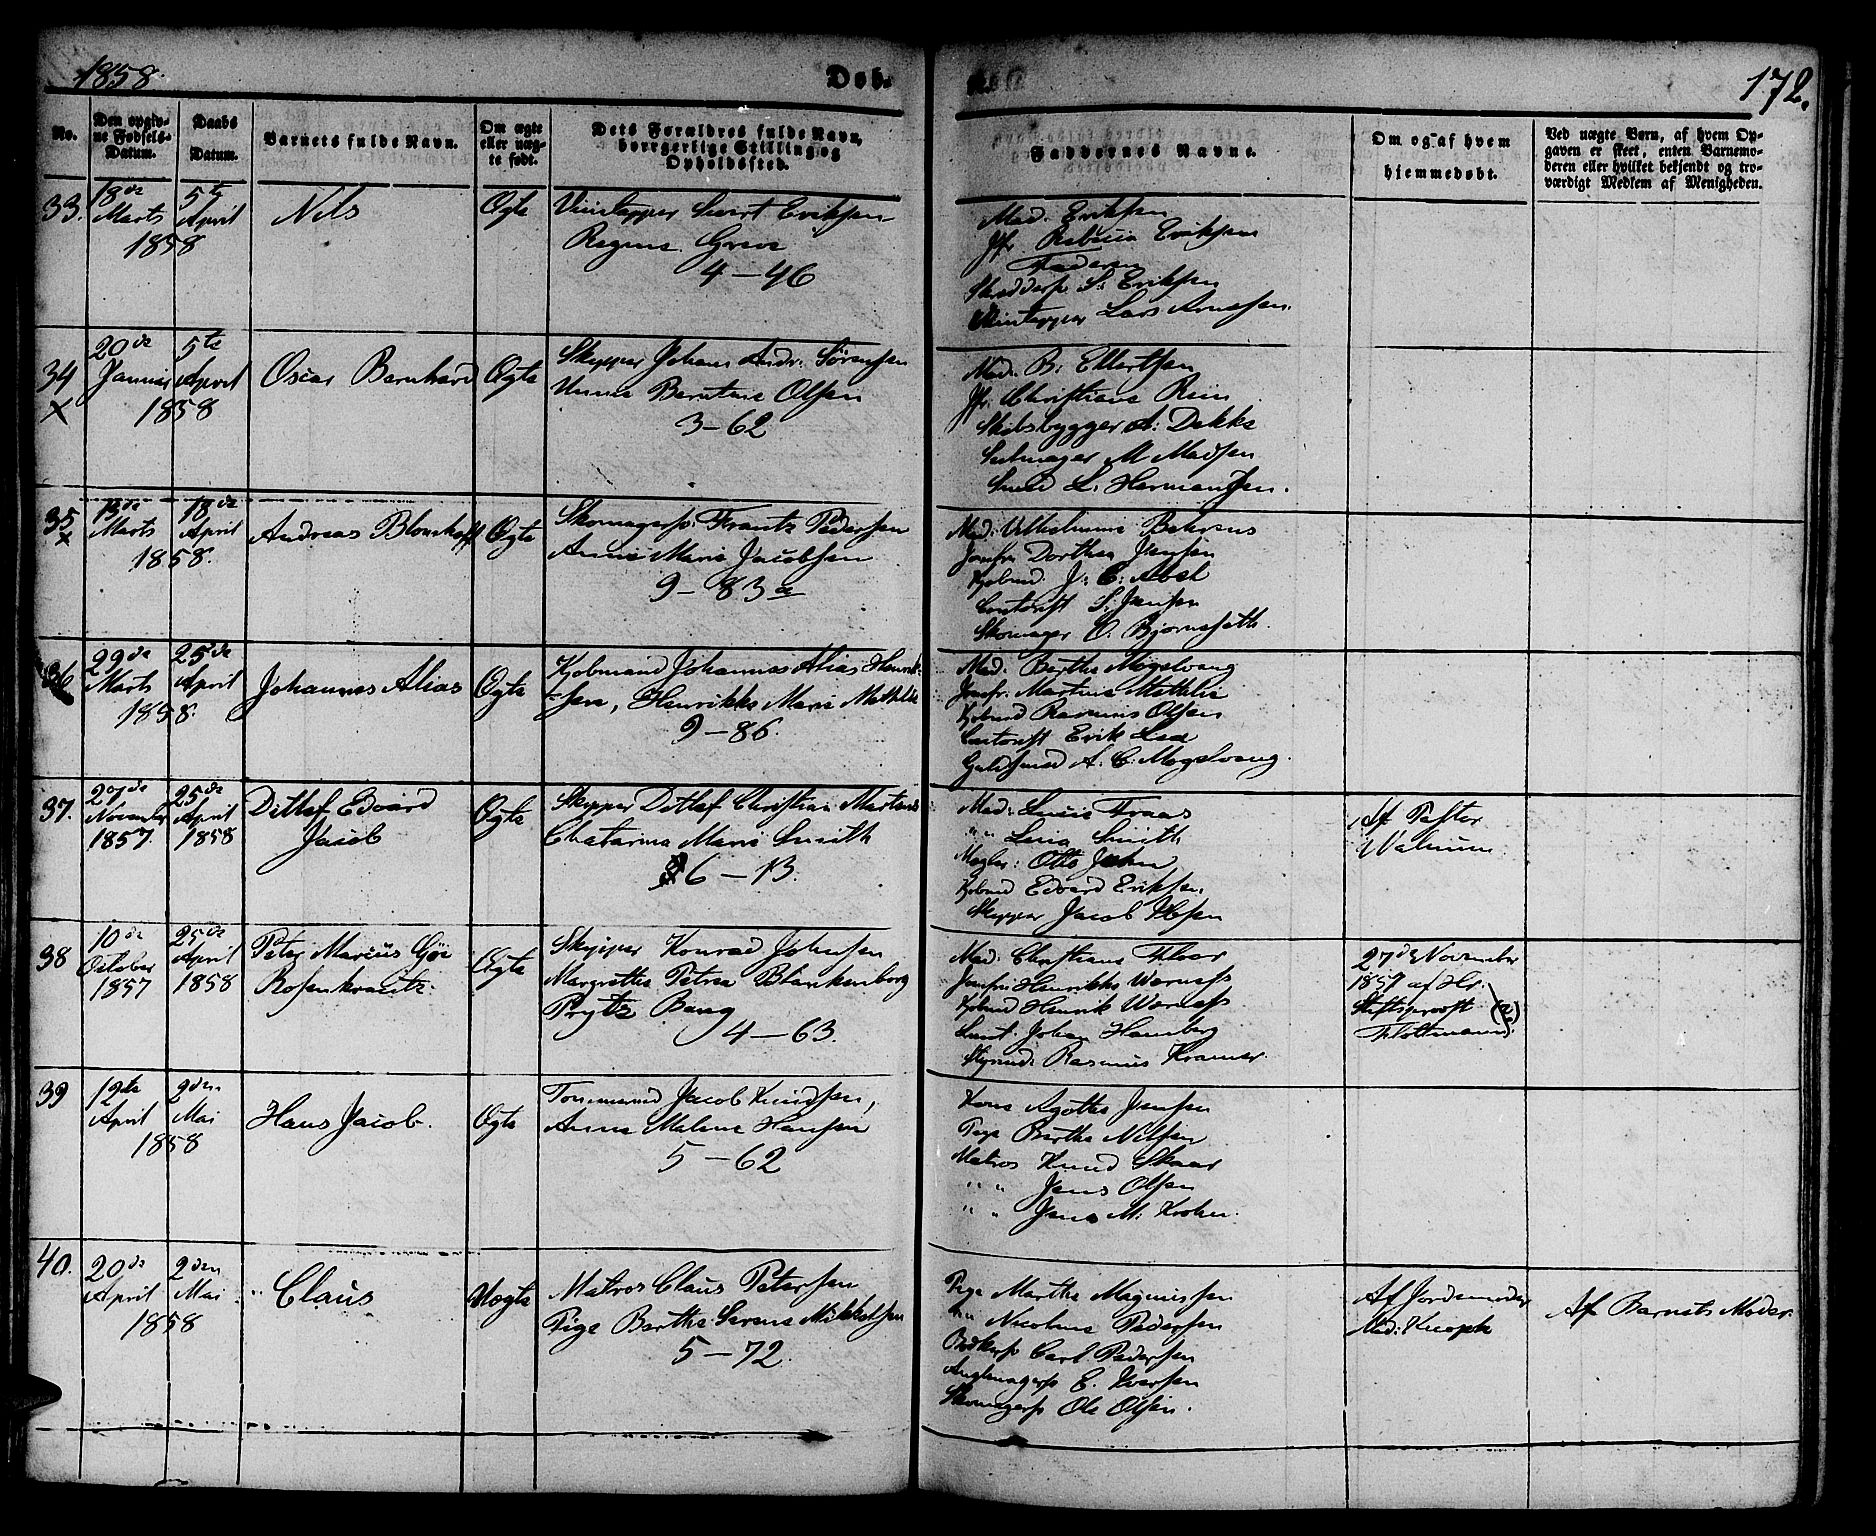 1858.
Døb-
172.
No.
Den opgiv-
ne Fødsels-
Datum.
Daabs
Datum.
Barnets fulde Navn.
Om ægte
eller uæg-
te født.
Dets Forældres fulde Navn,
borgerlige Stilling og
Opholdssted.
Faddernes Navne.
Om og af hvem
hjemmedøbt.
Ved uægte Børn, af hvem Op-
gaven er skeet, enten Barnemo-
deren eller hvilket bekjendt og tro-
værdigt Medlem af Menigheden.
33.
18de
Marts
5te
April
1858
Nils
Ægte
Vintapper Sivert Eriksen
Regine Greve
4-46
Mad. Eriksen
Jfr. Eriksen
Faderen
Skræddersv. S. Eriksen
Vintapper Lars Arnesen.
34
x
20de
Januar
5te
April
1858
Oscar Bernhard
Ægte
Skipper Johan Andr. Sørensen
Berntine Olsen
3-62
Mad. B. Ellertsen
Jfr. Christiane
Skibsbygger A. Dekke
M Madsen
Smed L. Hermansen.
35
x
13de
Marts
18de
April
1858.
Andreas Blomhoff
Ægte
Skomagersv. Frantz Pedersen
Anne Marie Jacobsen
9-83a
Mad. Vilhelmine Behrens
Jomfr. Dorthea Jensen
Kjøbmd. J. C. Abel
Contorist S. Jensen
Skomager O. Bjørnesett.
36
29de
Marts
25de
April
1858.
Johannes Alias
Ægte
Kjøbmand Johannes Alias Henrik-
-sen, Henrikke Marie Mathilde
9-86.
Mad. Berthe Magelvang
Jomfr. Martine Mathilde
Kjøbmd Rasmus Olsen
Contorist Erik Lea
Guldsmed A. C. Magelvang.
37.
27de
November
1857.
25de
April
1858
Ditlef Edvard
Jacob
Ægte
Skipper Ditlef Christian Martens
Chatarina Marie Smith
6-13.
Mad. Lucie Fraas
" " Lina Smith
Mægler: Otto Jahn
Kjøbmd Edvard Eriksen.
Skipper Jacob Ibsen
Af Pastor
Walnum
38
10de
October
1857
25de
April
1858
Peter Marius Gøe
Rosenkrantz.
Ægte
Skipper Konrad Johnsen
Margrethe Petrea Blankenborg
Prytz Bang
4-63.
Mad. Christiane Floor
Jomfru Henrikke Werness
Kjøbmd Henrik Werness
Johan Hamberg
Styrmd. Rasmus Kramer
27de November
1857 af Hr.
Stiftsprovst
39
12te
April
2den
Mai
1858
Hans Jacob.
Ægte
Tømmermd Jacob Knudsen,
Anne Malene Hansen
5-62
Kone Agathe Jensen
Pige Berthe Nilsen
Matros Knud Skaar
" " Jens Olsen
" " Jens M. Krohn.
40.
20de
April
2den
Mai
1858
Claus
Uægte
Matros Claus Petersen
Pige Berthe Serene Mikkelsen
5-72.
Pige Marthe Magnussen
" Nicoline Pedersen
Carl Pedersen
E. Iversen
Skomagersv Ole Olsen.
Af Jordemoder
Mad: Knoph
Af Barnets Moder.